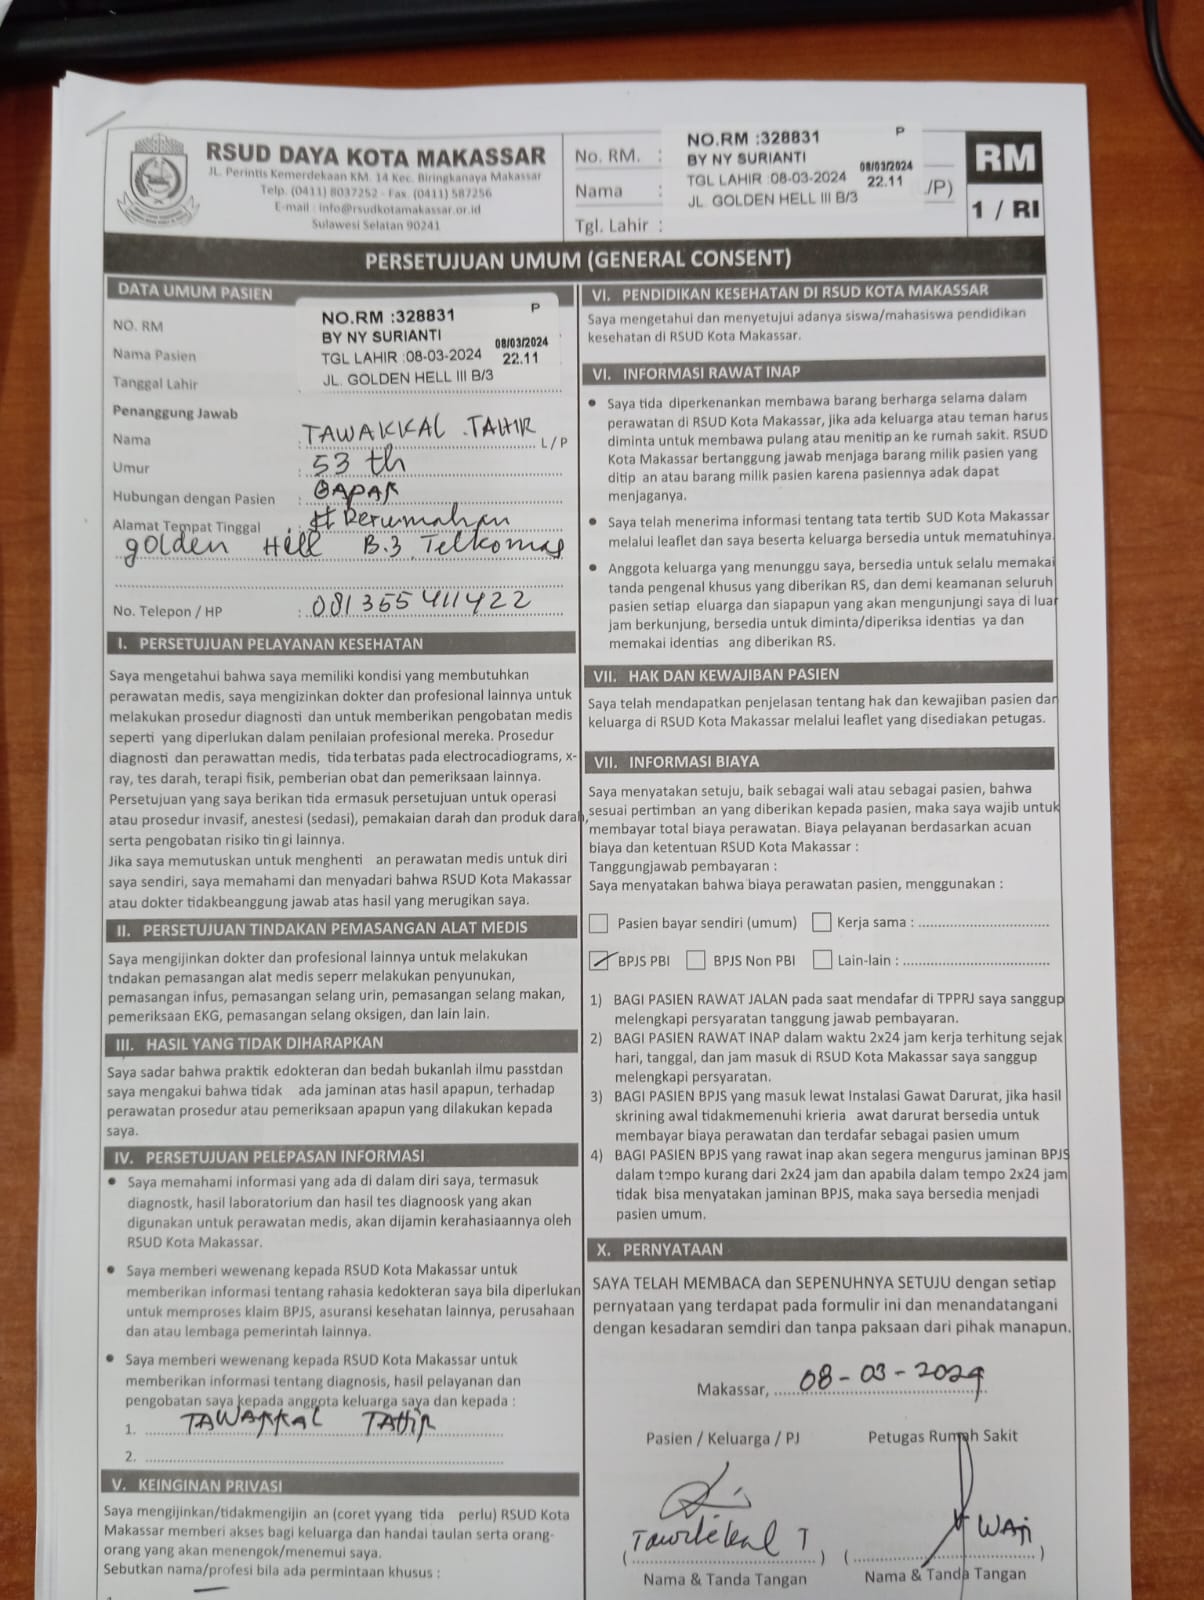 RSUD DAYA KOTA MAKASSAR
JL. Perintis Kemerdekaan KM. 14 Kec. Biringkanaya Makassar
Telp. (0411) 8037252 - Fax. (0411) 587256
E-mail : info@rsudkotamakassar.or.id
Sulawesi Selatan 90241
No. RM. :
Nama :
Tgl. Lahir :
NO.RM :328831 P
BY NY SURIANTI
TGL LAHIR :08-03-2024 08/03/2024 22.11
JL. GOLDEN HELL III B/3
/P)
RM
1 / RI
PERSETUJUAN UMUM (GENERAL CONSENT)
DATA UMUM PASIEN
NO. RM
Nama Pasien
Tanggal Lahir
NO.RM :328831 P
BY NY SURIANTI
TGL LAHIR :08-03-2024 08/03/2024 22.11
JL. GOLDEN HELL III B/3
Penanggung Jawab
Nama : TAWAKKAL TAHIR L/P
Umur : 53 th
Hubungan dengan Pasien : BAPAK
Alamat Tempat Tinggal : Perumahan
golden Hell B.3 Telkomas
No. Telepon / HP : 081355411422
I. PERSETUJUAN PELAYANAN KESEHATAN
Saya mengetahui bahwa saya memiliki kondisi yang membutuhkan
perawatan medis, saya mengizinkan dokter dan profesional lainnya untuk
melakukan prosedur diagnosti dan untuk memberikan pengobatan medis
seperti yang diperlukan dalam penilaian profesional mereka. Prosedur
diagnosti dan perawattan medis, tida terbatas pada electrocadiograms, x-
ray, tes darah, terapi fisik, pemberian obat dan pemeriksaan lainnya.
Persetujuan yang saya berikan tida ermasuk persetujuan untuk operasi
atau prosedur invasif, anestesi (sedasi), pemakaian darah dan produk darah,
serta pengobatan risiko tin gi lainnya.
Jika saya memutuskan untuk menghenti an perawatan medis untuk diri
saya sendiri, saya memahami dan menyadari bahwa RSUD Kota Makassar
atau dokter tidakbeanggung jawab atas hasil yang merugikan saya.
II. PERSETUJUAN TINDAKAN PEMASANGAN ALAT MEDIS
Saya mengijinkan dokter dan profesional lainnya untuk melakukan
tndakan pemasangan alat medis seperr melakukan penyunukan,
pemasangan infus, pemasangan selang urin, pemasangan selang makan,
pemeriksaan EKG, pemasangan selang oksigen, dan lain lain.
III. HASIL YANG TIDAK DIHARAPKAN
Saya sadar bahwa praktik edokteran dan bedah bukanlah ilmu passtdan
saya mengakui bahwa tidak ada jaminan atas hasil apapun, terhadap
perawatan prosedur atau pemeriksaan apapun yang dilakukan kepada
saya.
IV. PERSETUJUAN PELEPASAN INFORMASI
• Saya memahami informasi yang ada di dalam diri saya, termasuk
diagnostk, hasil laboratorium dan hasil tes diagnoosk yang akan
digunakan untuk perawatan medis, akan dijamin kerahasiaannya oleh
RSUD Kota Makassar.
• Saya memberi wewenang kepada RSUD Kota Makassar untuk
memberikan informasi tentang rahasia kedokteran saya bila diperlukan
untuk memproses klaim BPJS, asuransi kesehatan lainnya, perusahaan
dan atau lembaga pemerintah lainnya.
• Saya memberi wewenang kepada RSUD Kota Makassar untuk
memberikan informasi tentang diagnosis, hasil pelayanan dan
pengobatan saya kepada anggota keluarga saya dan kepada :
1. TAWAKKAL TAHIR
2.
V. KEINGINAN PRIVASI
Saya mengijinkan/tidakmengijin an (coret yyang tida perlu) RSUD Kota
Makassar memberi akses bagi keluarga dan handai taulan serta orang-
orang yang akan menengok/menemui saya.
Sebutkan nama/profesi bila ada permintaan khusus :
VI. PENDIDIKAN KESEHATAN DI RSUD KOTA MAKASSAR
Saya mengetahui dan menyetujui adanya siswa/mahasiswa pendidikan
kesehatan di RSUD Kota Makassar.
VI. INFORMASI RAWAT INAP
• Saya tida diperkenankan membawa barang berharga selama dalam
perawatan di RSUD Kota Makassar, jika ada keluarga atau teman harus
diminta untuk membawa pulang atau menitip an ke rumah sakit. RSUD
Kota Makassar bertanggung jawab menjaga barang milik pasien yang
ditip an atau barang milik pasien karena pasiennya adak dapat
menjaganya.
• Saya telah menerima informasi tentang tata tertib SUD Kota Makassar
melalui leaflet dan saya beserta keluarga bersedia untuk mematuhinya.
• Anggota keluarga yang menunggu saya, bersedia untuk selalu memakai
tanda pengenal khusus yang diberikan RS, dan demi keamanan seluruh
pasien setiap eluarga dan siapapun yang akan mengunjungi saya di luar
jam berkunjung, bersedia untuk diminta/diperiksa identias ya dan
memakai identias ang diberikan RS.
VII. HAK DAN KEWAJIBAN PASIEN
Saya telah mendapatkan penjelasan tentang hak dan kewajiban pasien dan
keluarga di RSUD Kota Makassar melalui leaflet yang disediakan petugas.
VII. INFORMASI BIAYA
Saya menyatakan setuju, baik sebagai wali atau sebagai pasien, bahwa
sesuai pertimban an yang diberikan kepada pasien, maka saya wajib untuk
membayar total biaya perawatan. Biaya pelayanan berdasarkan acuan
biaya dan ketentuan RSUD Kota Makassar :
Tanggungjawab pembayaran :
Saya menyatakan bahwa biaya perawatan pasien, menggunakan :
Pasien bayar sendiri (umum) Kerja sama :
BPJS PBI BPJS Non PBI Lain-lain :
1) BAGI PASIEN RAWAT JALAN pada saat mendafar di TPPRJ saya sanggup
melengkapi persyaratan tanggung jawab pembayaran.
2) BAGI PASIEN RAWAT INAP dalam waktu 2x24 jam kerja terhitung sejak
hari, tanggal, dan jam masuk di RSUD Kota Makassar saya sanggup
melengkapi persyaratan.
3) BAGI PASIEN BPJS yang masuk lewat Instalasi Gawat Darurat, jika hasil
skrining awal tidakmemenuhi krieria awat darurat bersedia untuk
membayar biaya perawatan dan terdafar sebagai pasien umum
4) BAGI PASIEN BPJS yang rawat inap akan segera mengurus jaminan BPJS
dalam tempo kurang dari 2x24 jam dan apabila dalam tempo 2x24 jam
tidak bisa menyatakan jaminan BPJS, maka saya bersedia menjadi
pasien umum.
X. PERNYATAAN
SAYA TELAH MEMBACA dan SEPENUHNYA SETUJU dengan setiap
pernyataan yang terdapat pada formulir ini dan menandatangani
dengan kesadaran semdiri dan tanpa paksaan dari pihak manapun.
Makassar, 08-03-2024
Pasien / Keluarga / PJ Petugas Rumah Sakit
(Tawakkal T) (WAJI)
Nama & Tanda Tangan Nama & Tanda Tangan